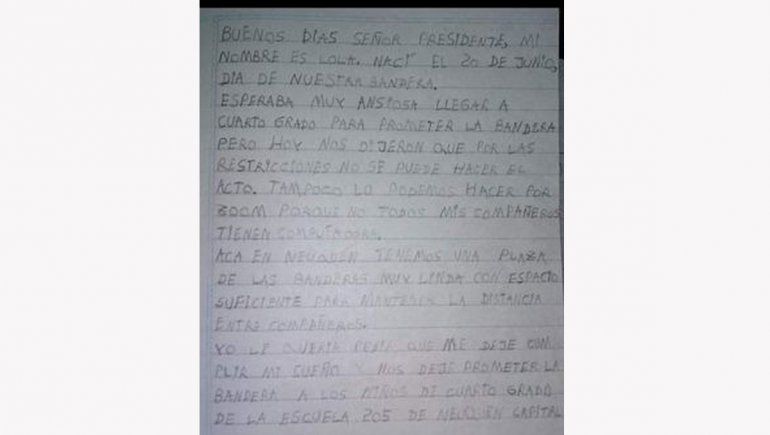 BUENOS DIAS SEÑOR PRESIDENTE, MI
NOMBRE ES LOLA. NACI EL 20 DE JUNIO,
DIA DE NUESTRA BANDERA.
ESPERABA MUY ANSIOSA LLEGAR A
CUARTO GRADO PARA PROMETER LA BANDERA
PERO HOY NOS DIJERON QUE POR LAS
RESTRICCIONES NO SE PUEDE HACER EL
ACTO. TAMPOCO LO PODEMOS HACER POR
ZOOM PORQUE NO TODOS MIS COMPAÑEROS
TIENEN COMPUTADORA.
ACA EN NEUQUEN TENEMOS UNA PLAZA
DE LAS BANDERAS MUY LINDA CON ESPACIO
SUFICIENTE PARA MANTENER LA DISTANCIA
ENTRE COMPAÑEROS.
YO LE QUERIA PEDIR QUE ME DEJE CUM
PLIR MI SUEÑO Y NOS DEJE PROMETER LA
BANDERA A LOS NIÑOS DE CUARTO GRADO
DE LA ESCUELA 205 DE NEUQUEN CAPITAL